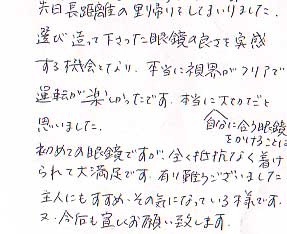 先日長距離の里帰りをしてまいりました.
選び造って下さった眼鏡の良さを実感
する機会となり. 本当に視界がクリアで
運転が楽しかったです. 本当に大切だと
思いました.
自分に合う眼鏡
をかけることに
初めての眼鏡ですが. 全く抵抗なく着け
られて大満足です. 有り難うございました
主人にもすすめ. その気になっている様です.
又. 今后も宜しくお願い致します.